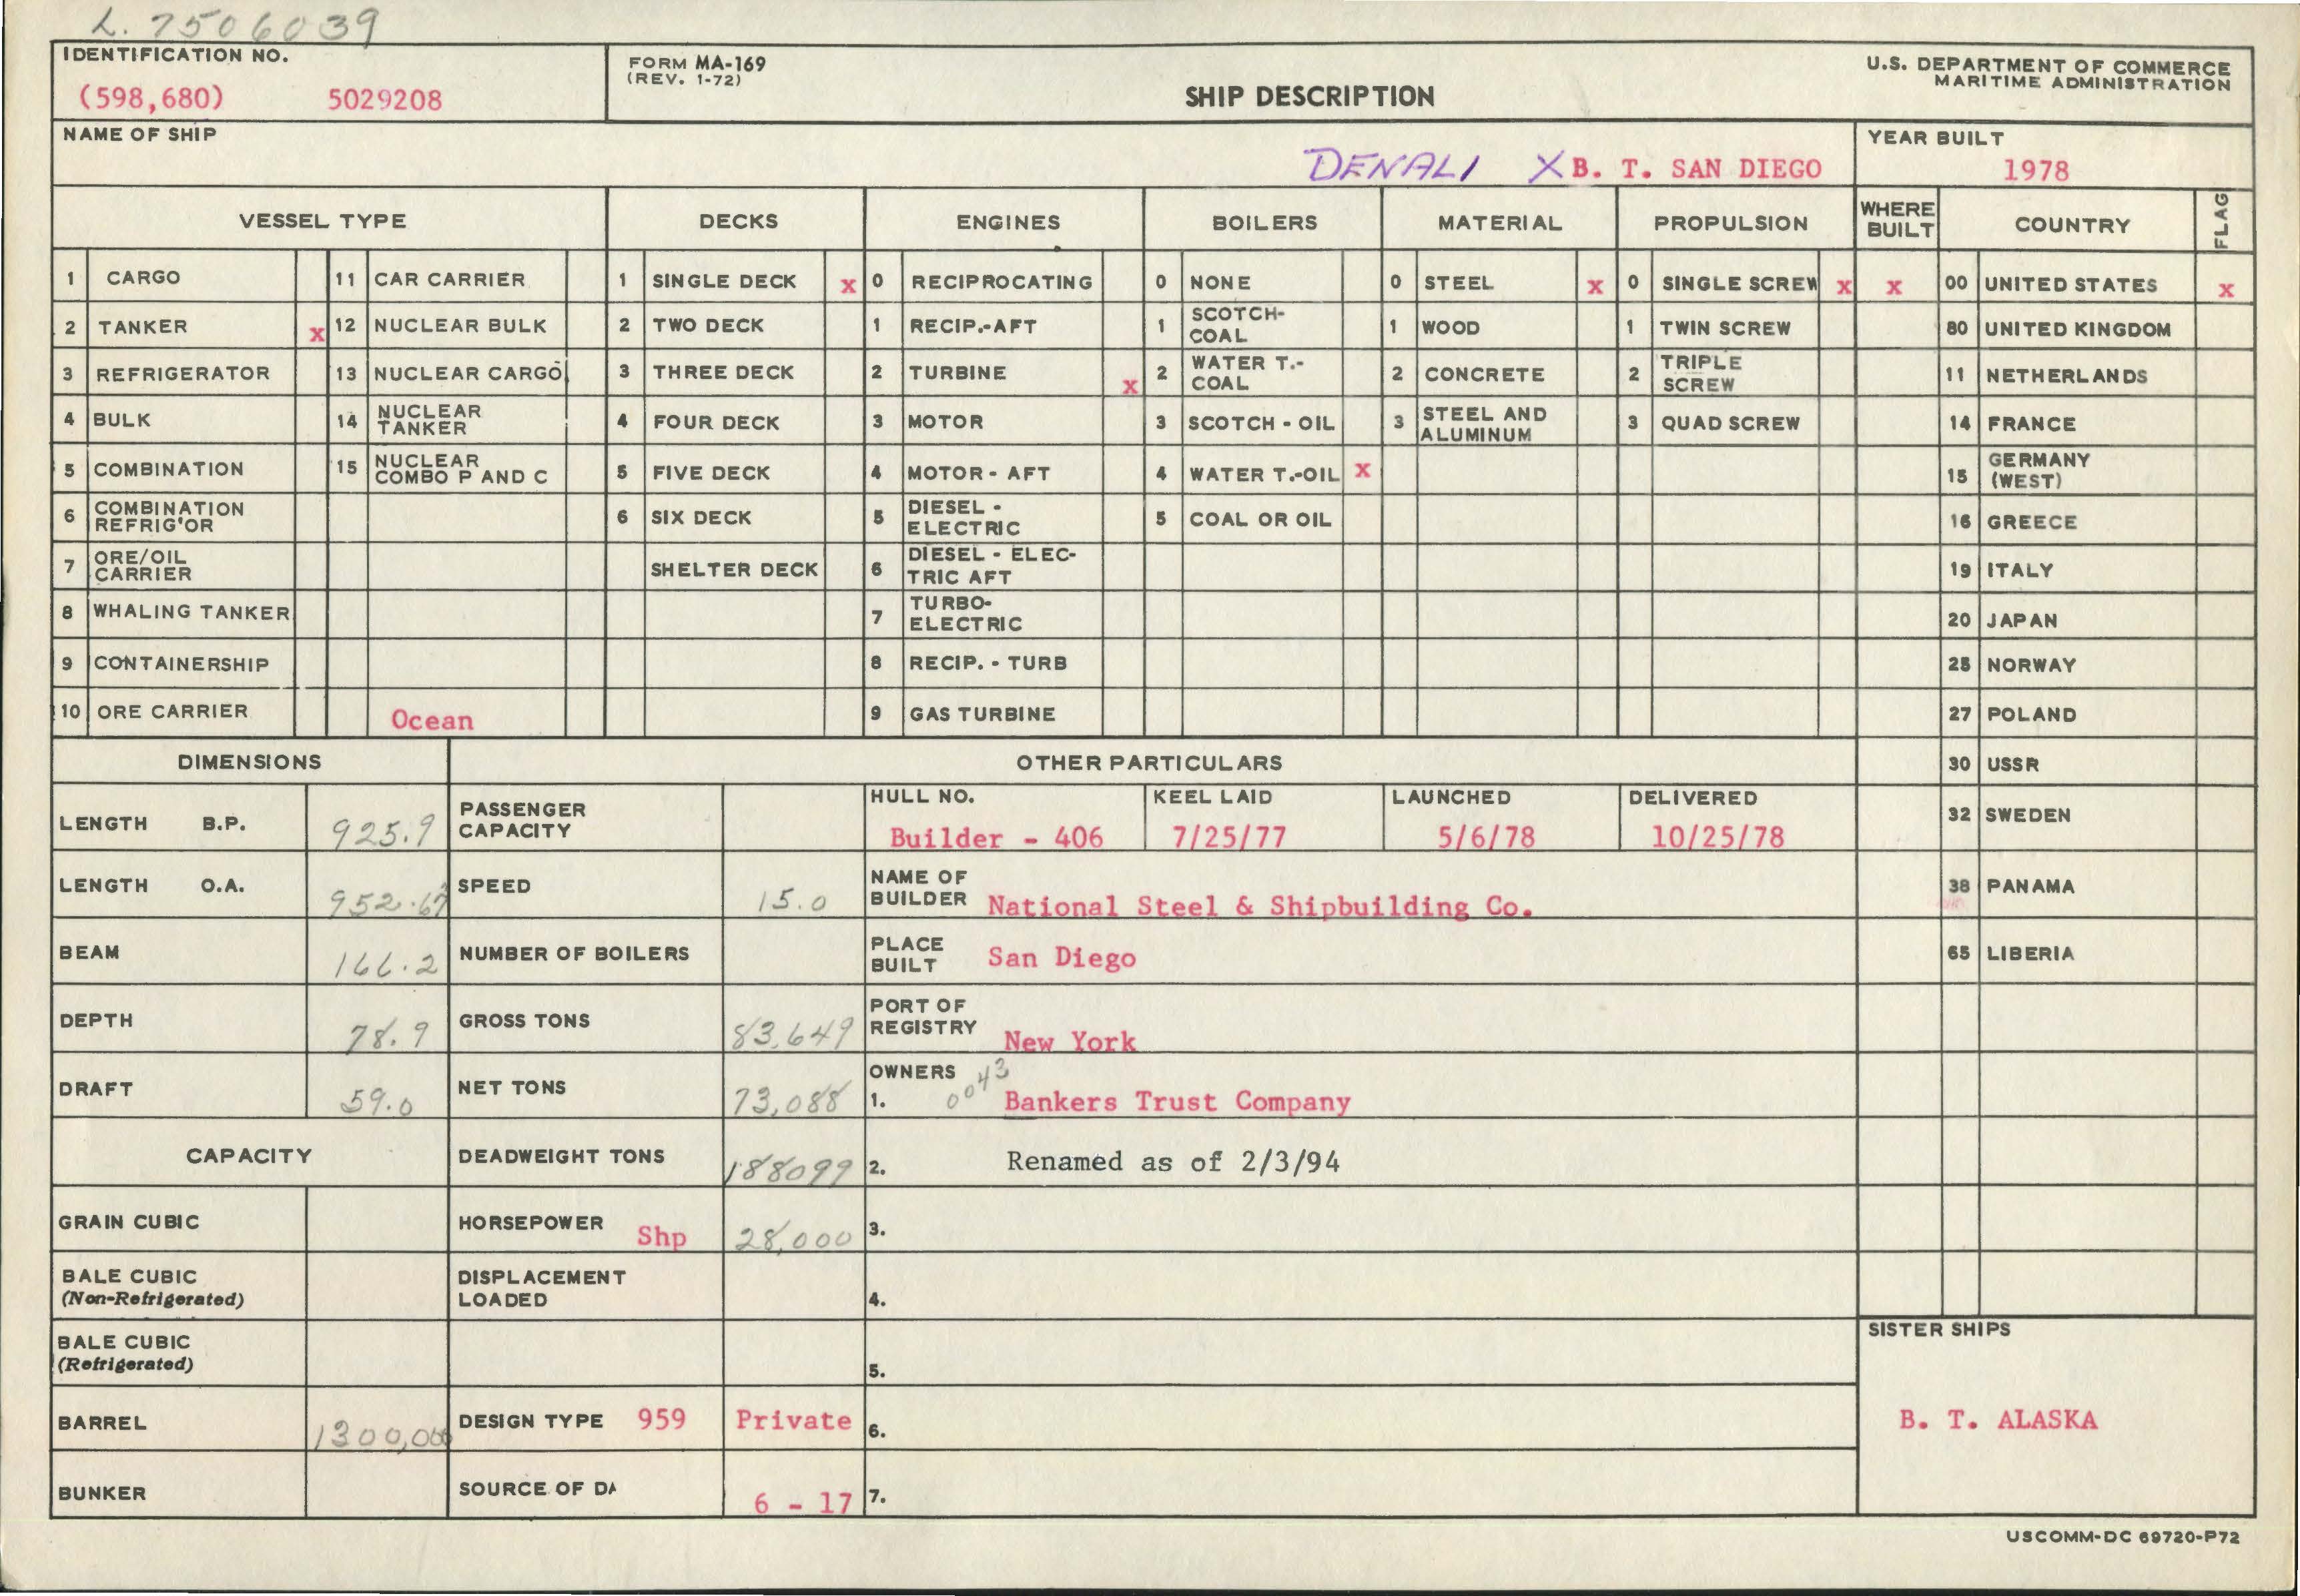 L. 7506039
IDENTIFICATION NO.
(598,680) 5029208
FORM MA-169
(REV. 1-72)
SHIP DESCRIPTION
U.S. DEPARTMENT OF COMMERCE
MARITIME ADMINISTRATION
NAME OF SHIP
DENALI X B. T. SAN DIEGO
YEAR BUILT
1978
VESSEL TYPE DECKS ENGINES BOILERS MATERIAL PROPULSION WHERE BUILT COUNTRY FLAG
1 CARGO 11 CAR CARRIER 1 SINGLE DECK x 0 RECIPROCATING 0 NONE 0 STEEL x 0 SINGLE SCREW x x 00 UNITED STATES x
2 TANKER x 12 NUCLEAR BULK 2 TWO DECK 1 RECIP.-AFT 1 SCOTCH-COAL 1 WOOD 1 TWIN SCREW 80 UNITED KINGDOM
3 REFRIGERATOR 13 NUCLEAR CARGO 3 THREE DECK 2 TURBINE x 2 WATER T.-COAL 2 CONCRETE 2 TRIPLE SCREW 11 NETHERLANDS
4 BULK 14 NUCLEAR TANKER 4 FOUR DECK 3 MOTOR 3 SCOTCH - OIL 3 STEEL AND ALUMINUM 3 QUAD SCREW 14 FRANCE
5 COMBINATION 15 NUCLEAR COMBO P AND C 5 FIVE DECK 4 MOTOR - AFT 4 WATER T.-OIL x 15 GERMANY (WEST)
6 COMBINATION REFRIG'OR 6 SIX DECK 5 DIESEL - ELECTRIC 5 COAL OR OIL 16 GREECE
7 ORE/OIL CARRIER SHELTER DECK 6 DIESEL - ELECTRIC AFT 19 ITALY
8 WHALING TANKER 7 TURBO-ELECTRIC 20 JAPAN
9 CONTAINERSHIP 8 RECIP. - TURB 25 NORWAY
10 ORE CARRIER Ocean 9 GAS TURBINE 27 POLAND
DIMENSIONS OTHER PARTICULARS 30 USSR
LENGTH B.P. 925.9 PASSENGER CAPACITY HULL NO. Builder - 406 KEEL LAID 7/25/77 LAUNCHED 5/6/78 DELIVERED 10/25/78 32 SWEDEN
LENGTH O.A. 952.67 SPEED 15.0 NAME OF BUILDER National Steel & Shipbuilding Co. 38 PANAMA
BEAM 166.2 NUMBER OF BOILERS PLACE BUILT San Diego 65 LIBERIA
DEPTH 78.9 GROSS TONS 83,649 PORT OF REGISTRY New York
DRAFT 59.0 NET TONS 73,088 OWNERS 1. 0043 Bankers Trust Company
CAPACITY DEADWEIGHT TONS 188099 2. Renamed as of 2/3/94
GRAIN CUBIC HORSEPOWER Shp 28,000 3.
BALE CUBIC (Non-Refrigerated) DISPLACEMENT LOADED 4.
BALE CUBIC (Refrigerated) 5.
SISTER SHIPS
BARREL 1300,000 DESIGN TYPE 959 Private 6. B. T. ALASKA
BUNKER SOURCE OF DA 6 - 17 7.
USCOMM-DC 69720-P72